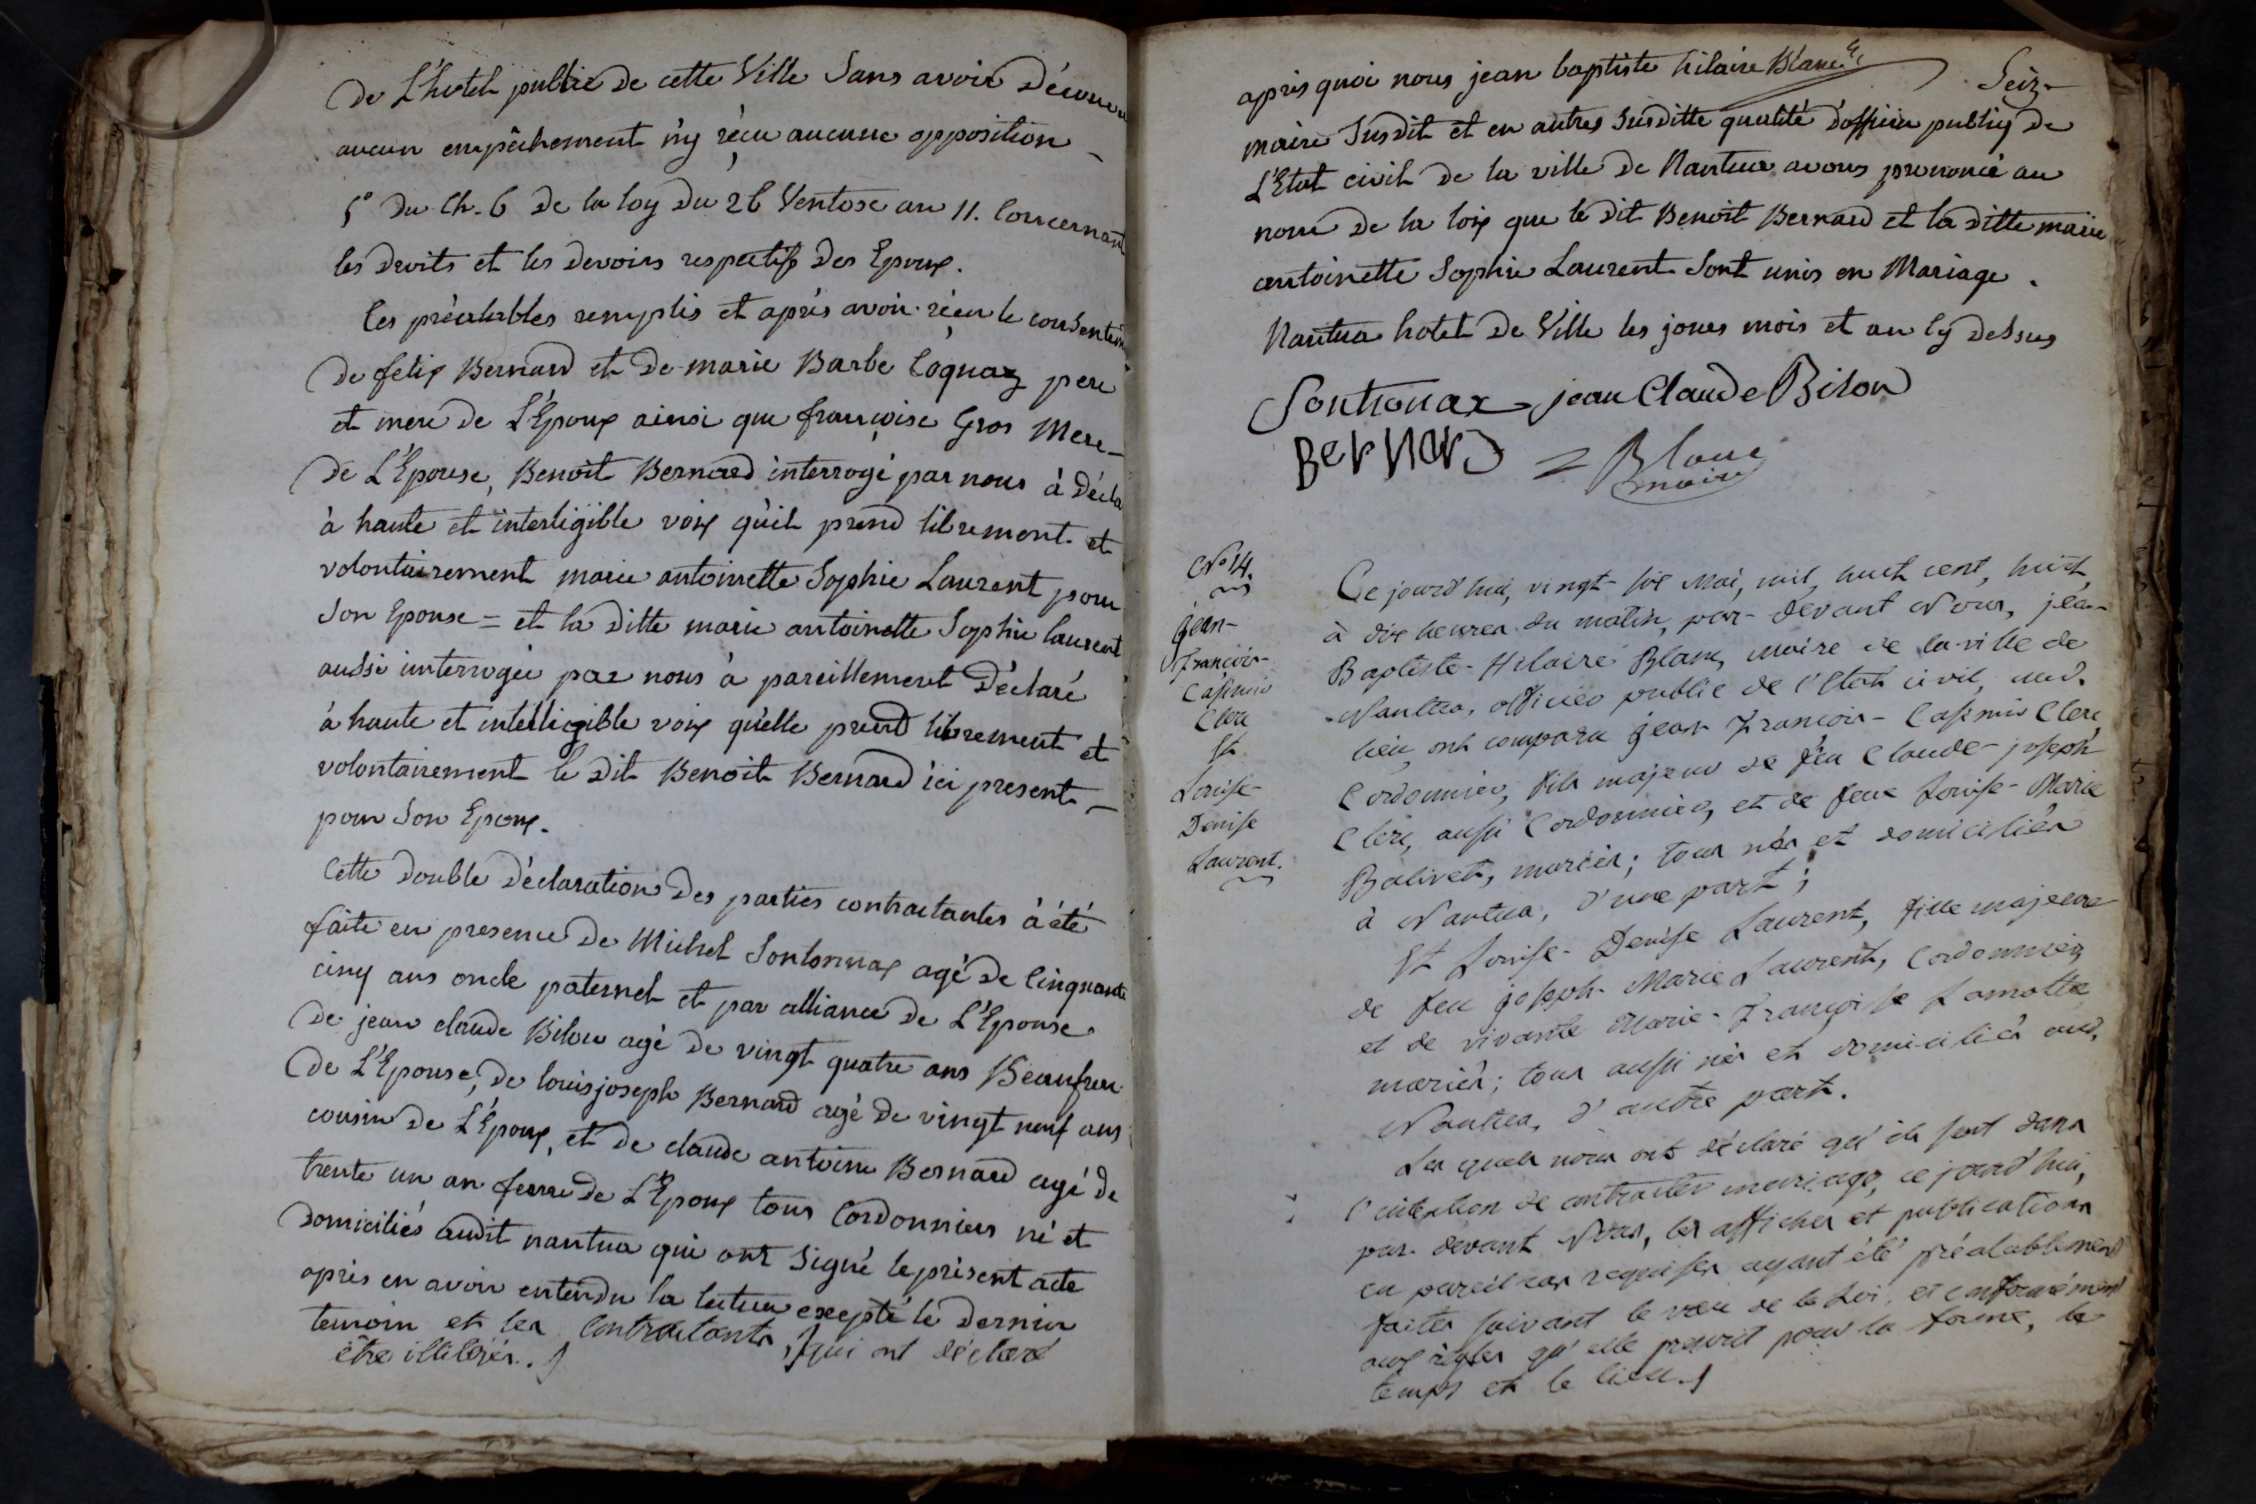 De L'hotel publie de cette Ville Sans avoir Décou
aucun empêchement n'y réçu aucune opposition
5° Du Ch. 6 De la loy Du 26 Ventose an 11. Concernant
les Droits et les Devoirs respectifs Des Epoux.
Ces préalables remplis et aprés avoir réçu le consente
De felix Bernard et De marie Barbe Coquaz pere
et mere de L'Epoux ainsi que françoise Gros Mere
De L'Epouse, Benoit Bernard interrogé par nous à Décla
à haute et interligible voix qu'il prend librement et
volontairement marie antoinette Sophie Laurent pour
Son Epouse = et la Ditte marie antoinette Sophie laurent
aussi interrogée par nous à pareillement Déclaré
à haute et intelligible voix qu'elle prend librement et
volontairement le Dit Benoit Bernard ici present
pour Son Epoux.
Cette Double Déclaration Des parties contractantes à été
faite en presence De Michel Sontonnax agé De Cinquante
cinq ans oncle paternel et par alliance De L'Epouse
De jean claude Bilon agé De vingt quatre ans Beaufrere
De L'Epouse, De louis joseph Bernard agé De vingt neuf ans
cousin De L'Epoux, et De claude antoine Bernard agé De
trente un an frere De L'Epoux tous Cordonniers né et
Domiciliés audit nantua qui ont Signé le présent acte
aprés en avoir entendu la lecture excepté le Dernier
temoin et les Contractants, qui ont déclaré
être illiterés.
aprés quoi nous jean baptiste hilaire Blanc
Seiz
maire Susdit et en autres Susditte qualité d'officier publiq De
L'Etat civil De la ville De Nantua avons prononcé au
nom De la loix que le dit Benoit Bernard et la Ditte marie
antoinette Sophie Laurent Sont unis en Mariage.
Nantua hotel De Ville les jours mois et an Cy Dessus
Sontronax jean Claude Bilon
Bernard = Blanc
maire
N° 14.
Jean-
François-
Casimir
Clerc
Et
Louise-
Denise
Laurent.
Ce jourd'hui, vingt-six Mai, mil huit cent huit,
à dix heures du matin, par-devant Nous, jean-
Baptiste-Hilaire Blanc, maire de la ville de
Nantua, officier public de l'Etat civil, aud.
lieu, ont comparu Jean-François-Casimir Clerc
Cordonnier, fils majeur de feu Claude-joseph
Clerc, aussi Cordonnier, et de feue Louise-Marie
Balivet, mariés; tous nés et domiciliés
à Nantua, d'une part;
Et Louise-Denise Laurent, fille majeure
de feu joseph-Marie Laurent, Cordonnier
et de vivante Marie-Françoise Lamotte
mariés; tous aussi nés et domiciliés aud.
Nantua, d'autre part.
Les quels nous ont déclaré qu'ils sont dans
l'intention de contracter mariage, ce jourd'hui,
par-devant Nous, les affiches et publications
en pareil cas requises ayant été préalablement
faites suivant le vœu de la Loi, et conformément
aux règles qu'elle prescrit pour la forme, le
temps et le lieu.